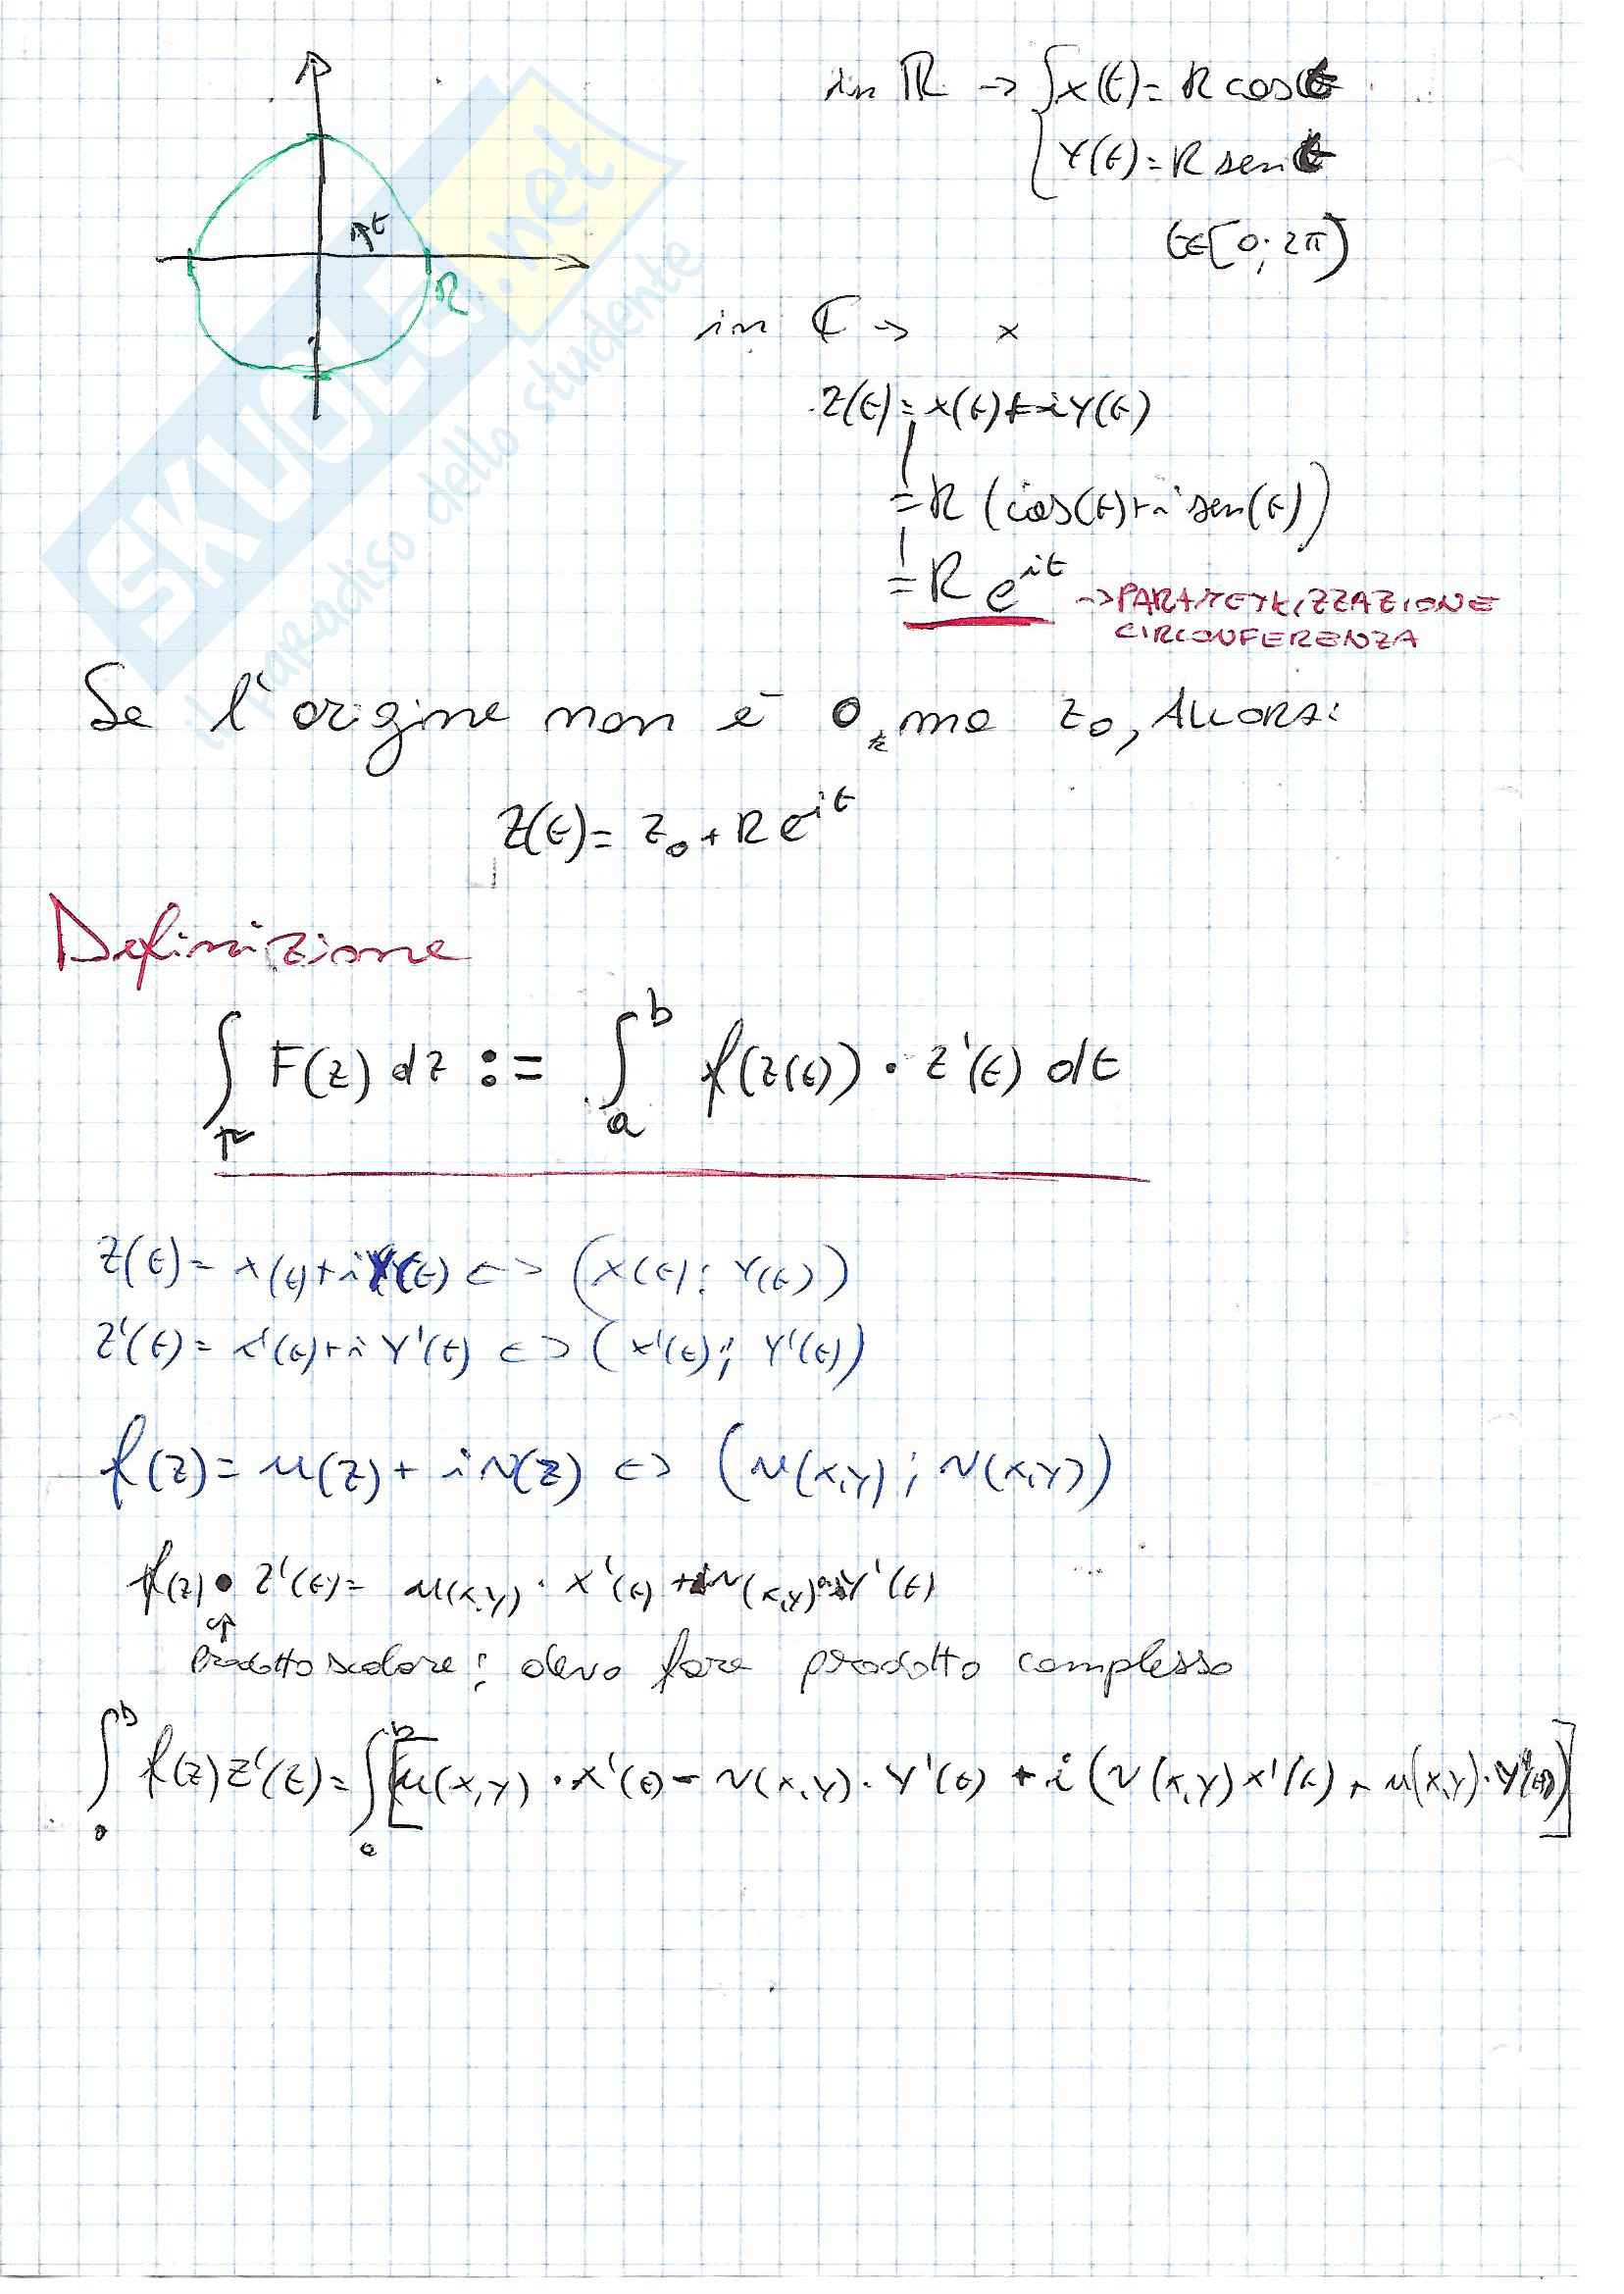 in ℝ → { x(t) = R cos t
y(t) = R sen t
t
t∈[0; 2π)
R
in ℂ → x
z(t) = x(t) + iy(t)
= R (cos(t) + i sen(t))
= R e^{it} → PARAMETRIZZAZIONE
CIRCONFERENZA
Se l'origine non è 0, ma z₀, ALLORA:
z(t) = z₀ + R e^{it}
Definizione
∫ F(z) dz := ∫_a^b f(z(t)) · z'(t) dt
z(t) = x(t) + iy(t) <-> (x(t); y(t))
z'(t) = x'(t) + i y'(t) <-> (x'(t); y'(t))
f(z) = u(z) + i v(z) <-> (u(x,y); v(x,y))
f(z) • z'(t) = u(x,y) · x'(t) + v(x,y) · y'(t)
prodotto scalare; devo fare prodotto complesso
∫_a^b f(z) z'(t) = ∫_a^b [u(x,y) · x'(t) - v(x,y) · y'(t) + i (v(x,y) x'(t) + u(x,y) · y'(t))]
SKUOLA.net
il paradiso dello studente